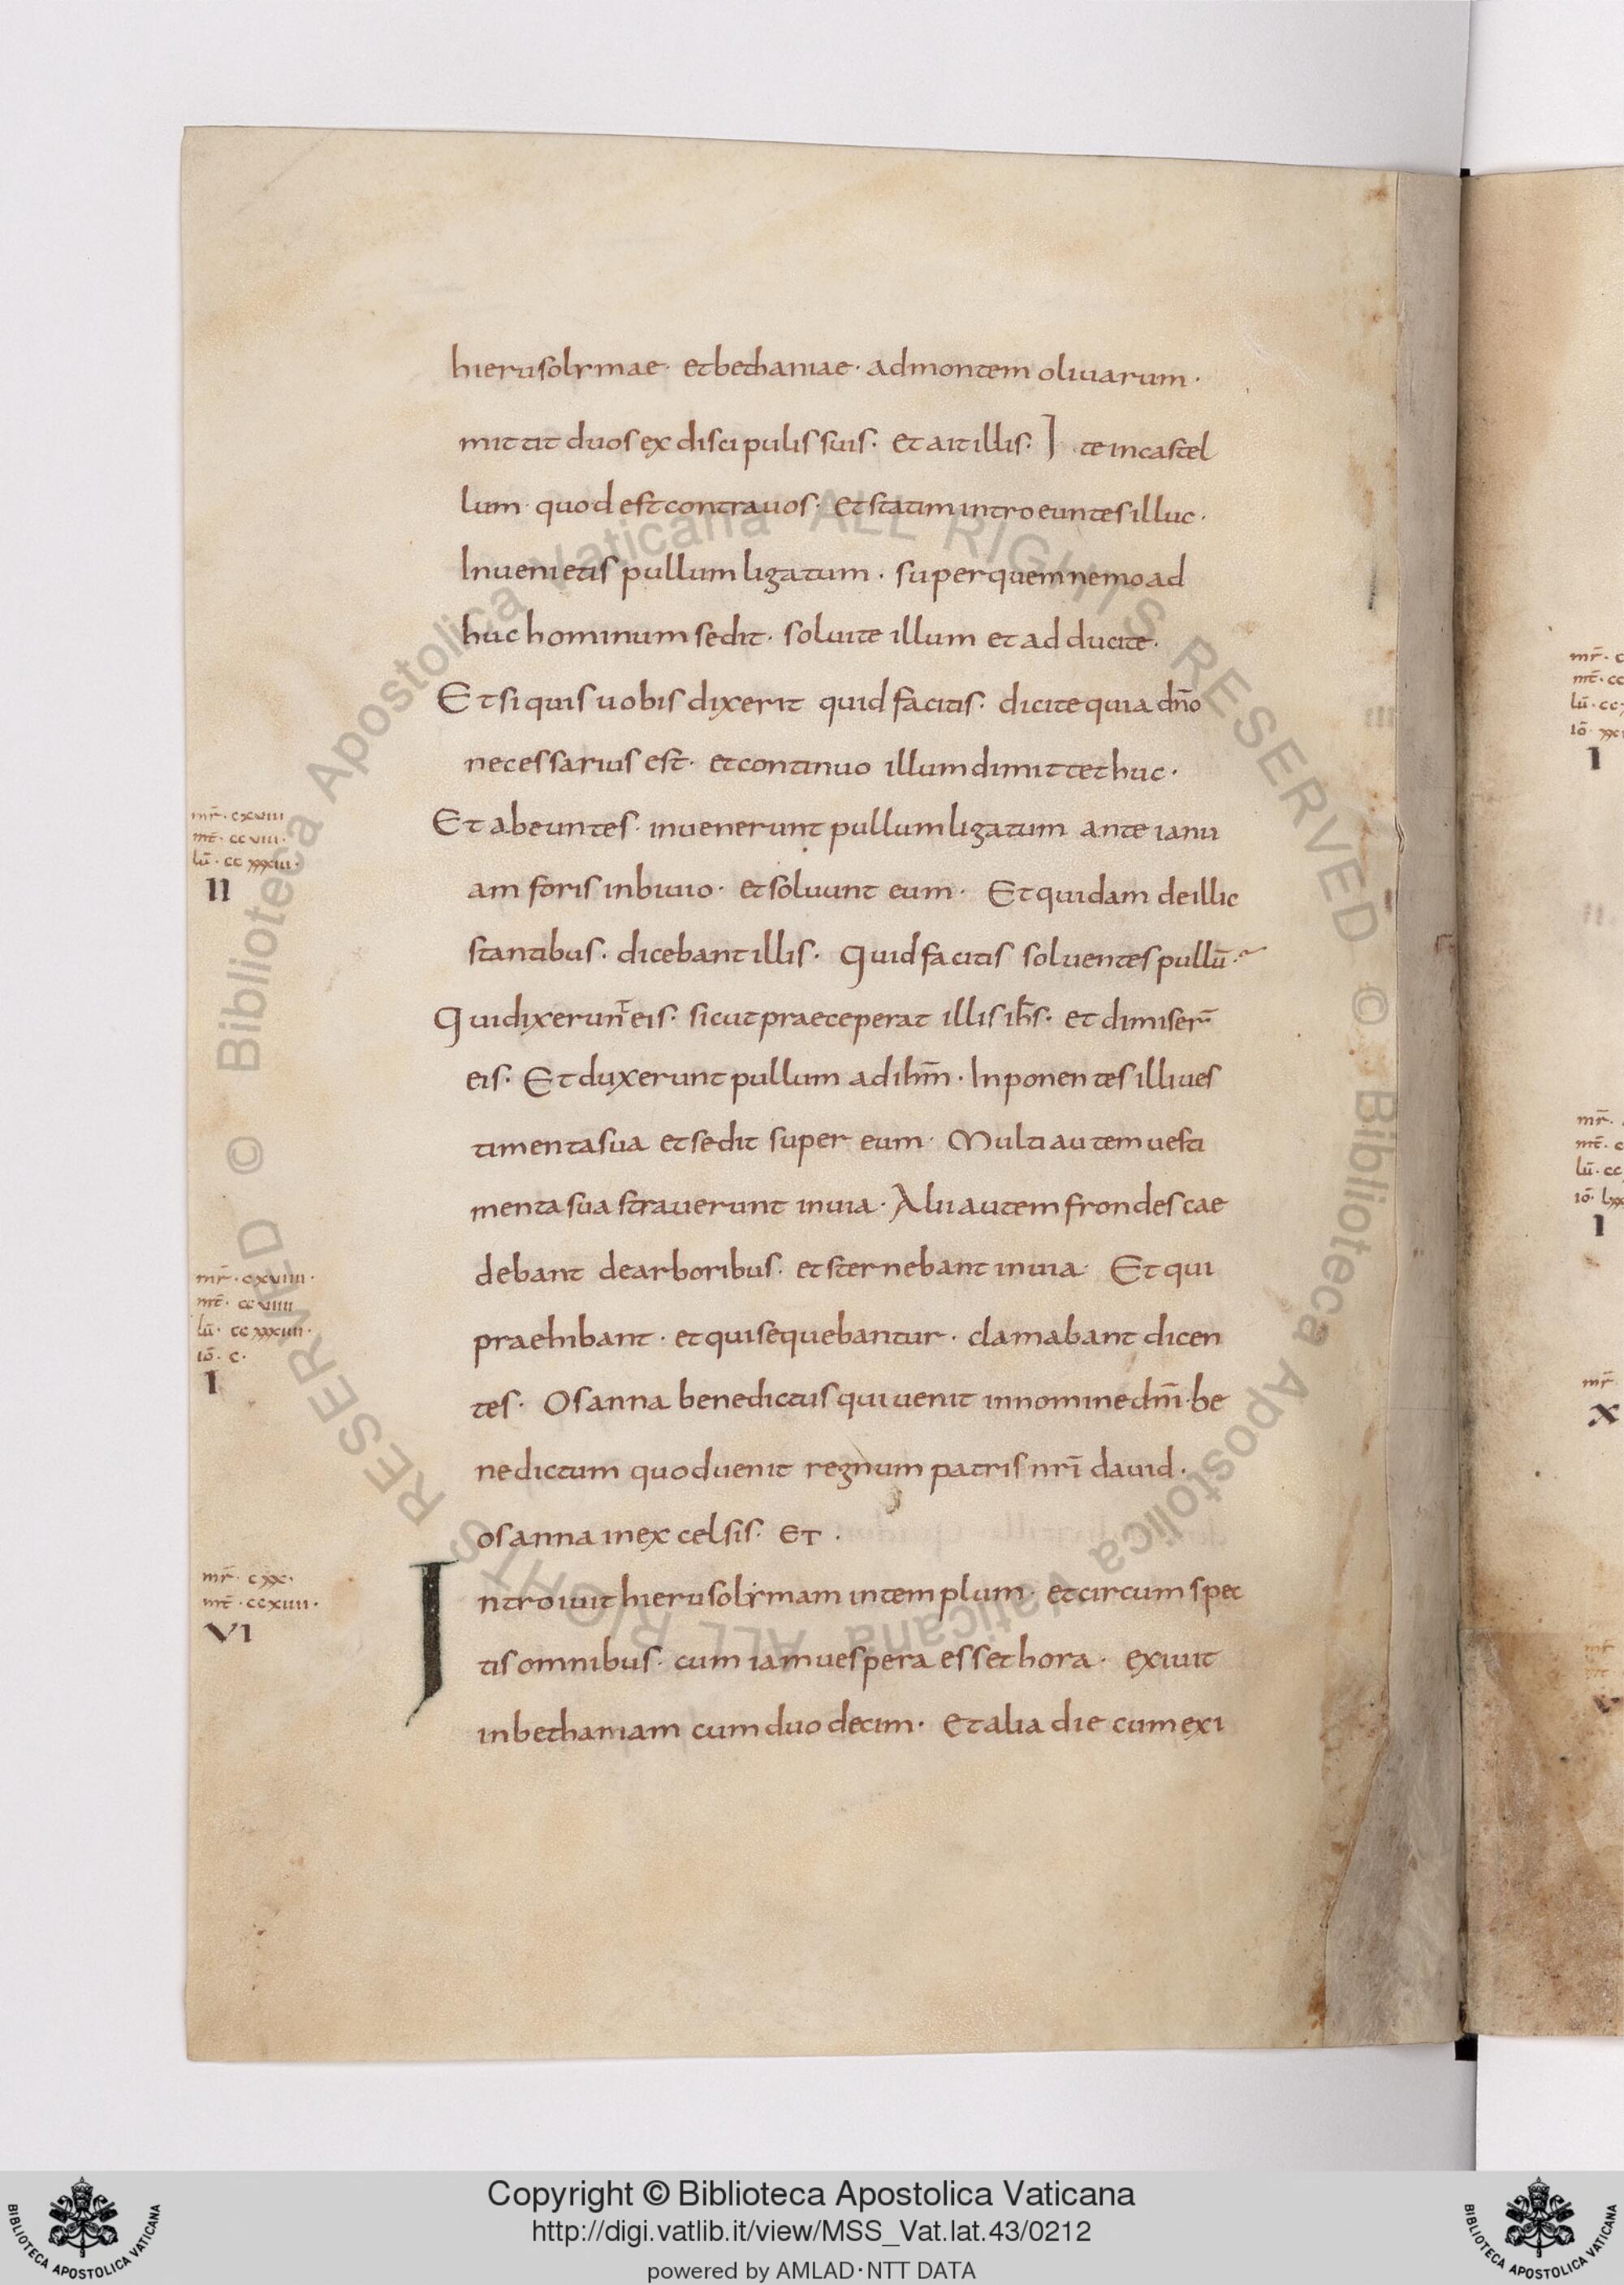 hierusolymae · et bethaniae · ad montem oliuarum ·
mittit duos ex discipulis suis · et ait illis · Ite in castel
lum · quod est contra uos · et statim intro euntes illuc ·
Inuenietis pullum ligatum · super quem nemo ad
huc hominum sedit · soluite illum et adducite ·
Et si quis uobis dixerit quid facitis · dicite quia dn̄o
necessarius est · et continuo illum dimittet huc ·
Et abeuntes · inuenerunt pullum ligatum ante ianu
am foris in biuio · et soluunt eum · Et quidam de illic
stantibus · dicebant illis · Quid facitis soluentes pullū ·~
Qui dixerun̄t eis · sicut praeceperat illis ih̄s · et dimiser̄
eis · Et duxerunt pullum ad ihm̄ · Inponentes illi ues
timenta sua et sedit super eum · Multi autem uesti
menta sua strauerunt in uia · Alii autem frondes cae
debant de arboribus · et sternebant in uia · Et qui
praehibant · et qui sequebantur · clamabant dicen
tes · Osanna benedictus qui uenit in nomine dn̄i · be
nedictum quod uenit regnum patris nr̄i dauid ·
osanna in excelsis · Et ·
Introiuit hierusolymam in templum · et circumspec
tis omnibus · cum iam uespera esset hora · exiuit
in bethaniam cum duodecim · Et alia die cum exi
mr̄ · cxviii
mt̄ · ccviii ·
lū · ccxxxiii ·
II
mr̄ · cxviiii ·
mt̄ · ccviiii
lū · ccxxxiiii ·
iō · c ·
I
mr̄ · cxx ·
mt̄ · ccxiiii ·
VI
© Biblioteca Apostolica Vaticana ALL RIGHTS RESERVED © Biblioteca Apostolica Vaticana ALL RIGHTS RESERVED
Copyright © Biblioteca Apostolica Vaticana
http://digi.vatlib.it/view/MSS_Vat.lat.43/0212
powered by AMLAD·NTT DATA
BIBLIOTECA APOSTOLICA VATICANA
BIBLIOTECA APOSTOLICA VATICANA